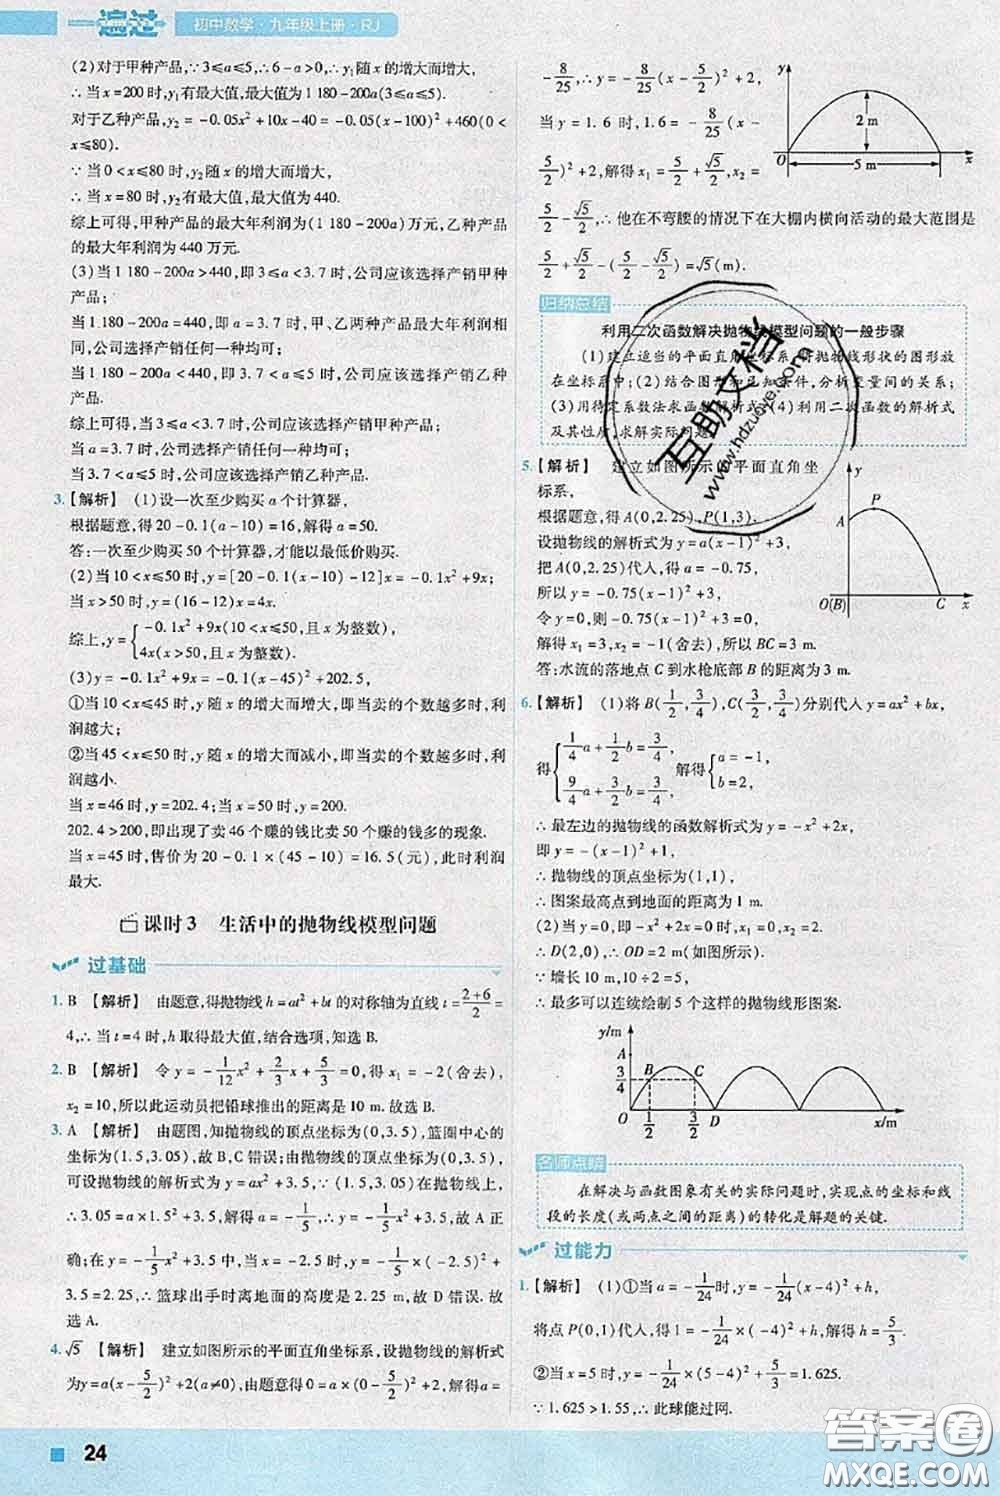 一遍过 初中数学·九年级上册·RJ
(2)对于甲种产品,∵3≤a≤5,∴6-a>0,∴y₁随x的增大而增大,
∴当x=200时,y₁有最大值,最大值为1 180-200a(3≤a≤5).
对于乙种产品,y₂=-0.05x²+10x-40=-0.05(x-100)²+460(0<
x≤80).
∵当0<x≤80时,y₂随x的增大而增大,
∴当x=80时,y₂有最大值,最大值为440.
综上可得,甲种产品的最大年利润为(1 180-200a)万元,乙种产品
的最大年利润为440万元.
(3)当1 180-200a>440,即3≤a<3.7时,公司应该选择产销甲种
产品;
当1 180-200a=440,即a=3.7时,甲、乙两种产品最大年利润相
同,公司选择产销任何一种均可;
当1 180-200a<440,即3.7<a≤5时,公司应该选择产销乙种产
品.
综上可得,当3≤a<3.7时,公司应选择产销甲种产品;
当a=3.7时,公司选择产销任何一种均可;
当3.7<a≤5时,公司选择产销乙种产品.
3.【解析】 (1)设一次至少购买a个计算器,
根据题意,得20-0.1(a-10)=16,解得a=50.
答:一次至少购买50个计算器,才能以最低价购买.
(2)当10<x≤50时,y=[20-0.1(x-10)-12]x=-0.1x²+9x;
当x>50时,y=(16-12)x=4x.
综上,y={-0.1x²+9x(10<x≤50,且x为整数),
4x(x>50,且x为整数).
(3)y=-0.1x²+9x=-0.1(x-45)²+202.5,
①当10<x≤45时,y随x的增大而增大,即当卖的个数越多时,利
润越大;
②当45<x≤50时,y随x的增大而减小,即当卖的个数越多时,利
润越小.
当x=46时,y=202.4;当x=50时,y=200.
202.4>200,即出现了卖46个赚的钱比卖50个赚的钱多的现象.
当x=45时,售价为20-0.1×(45-10)=16.5(元),此时利润
最大.
课时3 生活中的抛物线模型问题
过基础
1. B 【解析】 由题意,得抛物线h=at²+bt的对称轴为直线t=(2+6)/2=
4,∴当t=4时,h取得最大值,结合选项,知选B.
2. B 【解析】 令y=-1/12x²+2/3x+5/3=0,得x₁=-2(舍去),
x₂=10,所以此运动员把铅球推出的距离是10 m.故选B.
3. A 【解析】 由题图,知抛物线的顶点坐标为(0,3.5),篮圈中心的
坐标为(1.5,3.05),故B,C错误;由抛物线的顶点坐标为(0,3.5),
可设抛物线的解析式为y=ax²+3.5,∵(1.5,3.05)在抛物线上,
∴3.05=a×1.5²+3.5,解得a=-1/5,∴y=-1/5x²+3.5,故A正
确;在y=-1/5x²+3.5中,当x=-2.5时,y=-1/5×(-2.5)²+
3.5=2.25,∴篮球出手时离地面的高度是2.25 m,故D错误.故
选A.
4. √5 【解析】 建立如图所示的平面直角坐标系,设抛物线的解析式
为y=a(x-5/2)²+2(a≠0),由题意得0=a×(0-5/2)²+2,解得a=
-8/25,∴y=-8/25(x-5/2)²+2,
当y=1.6时,1.6=-8/25(x-
5/2)²+2,解得x₁=5/2+√5/2,x₂=
5/2-√5/2,∴他在不弯腰的情况下在大棚内横向活动的最大范围是
5/2+√5/2-(5/2-√5/2)=√5(m).
y
2 m
O 5 m x
归纳总结
利用二次函数解决抛物线模型问题的一般步骤
(1)建立适当的平面直角坐标系,将抛物线形状的图形放
在坐标系中;(2)结合图形和已知条件,分析变量间的关系;
(3)用待定系数法求函数解析式;(4)利用二次函数的解析式
及其性质,求解实际问题.
互助文档
www.hdzuoye.com
5.【解析】 建立如图所示的平面直角坐
标系,
根据题意,得A(0,2.25),P(1,3).
设抛物线的解析式为y=a(x-1)²+3,
把A(0,2.25)代入,得a=-0.75,
所以y=-0.75(x-1)²+3,
令y=0,则-0.75(x-1)²+3=0,
解得x₁=3,x₂=-1(舍去),所以BC=3 m.
答:水流的落地点C到水枪底部B的距离为3 m.
y
P
A
O(B) C x
6.【解析】 (1)将B(1/2,3/4),C(3/2,3/4)分别代入y=ax²+bx,
得{1/4a+1/2b=3/4,
9/4a+3/2b=3/4, 解得{a=-1,
b=2,
∴最左边的抛物线的函数解析式为y=-x²+2x,
即y=-(x-1)²+1,
∴抛物线的顶点坐标为(1,1),
∴图案最高点到地面的距离为1 m.
(2)当y=0时,-x²+2x=0,解得x₁=0,x₂=2,
∴D(2,0),∴OD=2 m(如图所示).
∵墙长10 m,10÷2=5,
∴最多可以连续绘制5个这样的抛物线形图案.
y/m
A
3/4 B C
O 1/2 3/2 D x/m
名师点睛
在解决与函数图象有关的实际问题时,实现点的坐标和线
段的长度(或两点之间的距离)的转化是解题的关键.
过能力
1.【解析】 (1)①当a=-1/24时,y=-1/24(x-4)²+h,
将点P(0,1)代入,得1=-1/24×(-4)²+h,解得h=5/3.
②当x=5时,y=-1/24×(5-4)²+5/3=1.625,
∵1.625>1.55,∴此球能过网.
24
答案圈
MXQE.COM